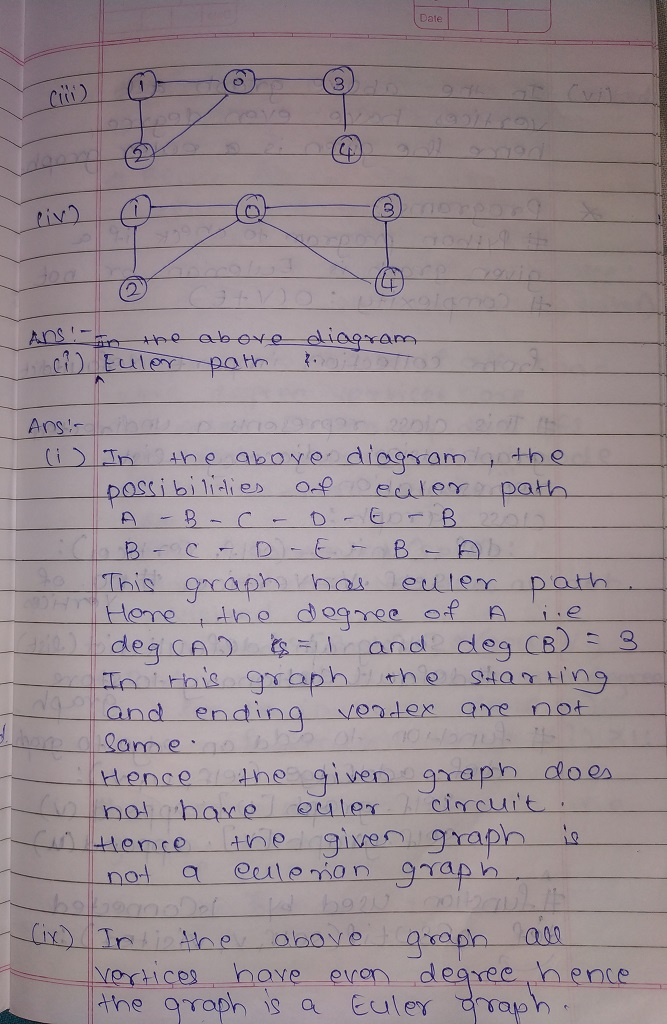 Date
(iii) 1 0 3
2 4
(iv) 1 0 3
2 4
Ans:- In the above diagram
(i) Euler path
Ans:-
(i) In the above diagram, the
possibilities of euler path
A - B - C - D - E - B
B - C - D - E - B - A
This graph has euler path.
Here, the degree of A i.e
deg (A) = 1 and deg (B) = 3
In this graph the starting
and ending vertex are not
same.
Hence the given graph does
not have euler circuit.
Hence the given graph is
not a eulerian graph.
(ix) In the above graph all
vertices have even degree, hence
the graph is a Euler graph.